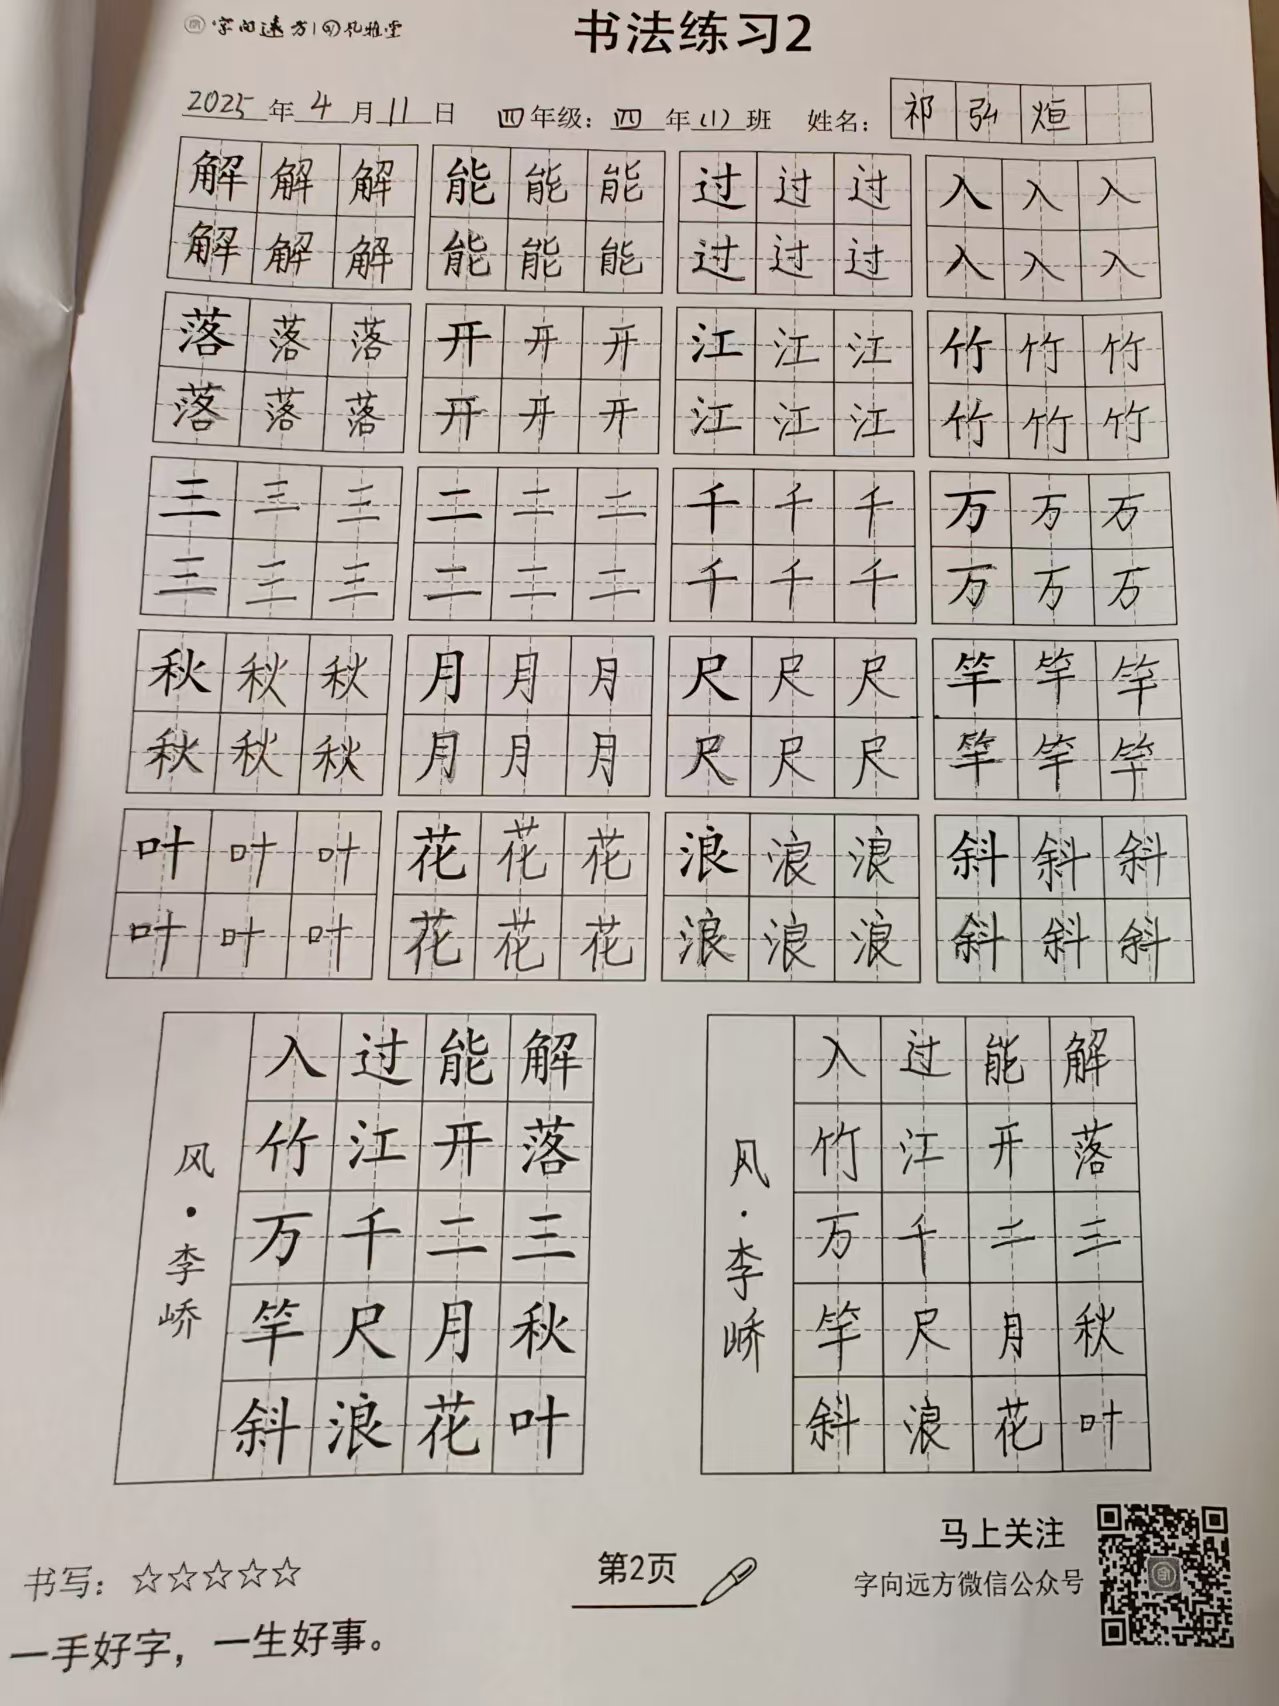 字向远方|回凡雅堂
书法练习2
2025年4月11日 四年级：四年(1)班 姓名：祁弘烜
解解解 能能能 过过过 入入入
解解解 能能能 过过过 入入入
落落落 开开开 江江江 竹竹竹
落落落 开开开 江江江 竹竹竹
三三三 二二二 千千千 万万万
三三三 二二二 千千千 万万万
秋秋秋 月月月 尺尺尺 竿竿竿
秋秋秋 月月月 尺尺尺 竿竿竿
叶叶叶 花花花 浪浪浪 斜斜斜
叶叶叶 花花花 浪浪浪 斜斜斜
解落三秋叶
能开二月花
过江千尺浪
入竹万竿斜
风·李峤
解落三秋叶
能开二月花
过江千尺浪
入竹万竿斜
风·李峤
书写：☆☆☆☆☆
一手好字，一生好事。
第2页
马上关注
字向远方微信公众号